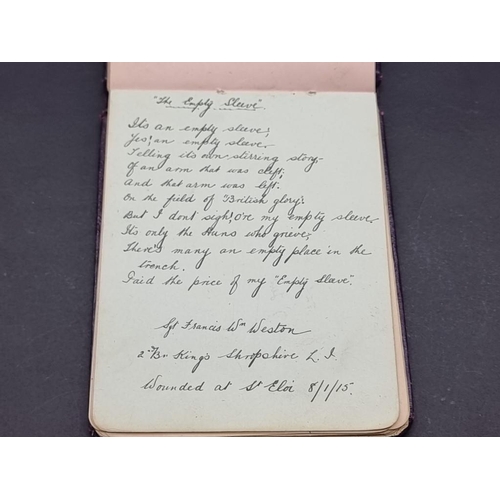 "The Empty Sleeve"
Its an empty sleeve;
Yes! an empty sleeve.
Telling its own stirring story-
Of an arm that was cleft;
And that arm was left.
On the field of British glory:
But I dont sigh! o're my empty sleeve.
Its only the Huns who grieve;
There's many an empty place in the
trench.
Paid the price of my "Empty Sleeve".
Sgt Francis Wm Weston
2nd Bn King's Shropshire L. I.
Wounded at St Eloi 8/1/15.